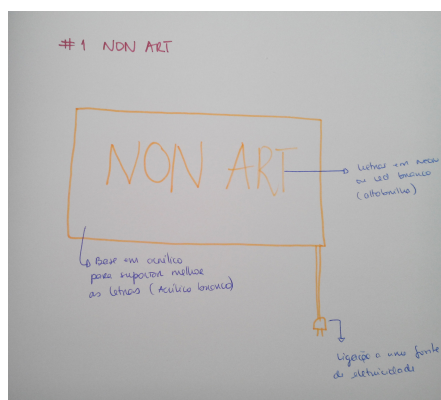 #1 NON ART
NON ART
Letras em neon
ou led branco
(alto brilho)
Base em acrílico
para suportar melhor
as letras (Acrílico branco)
Ligação a uma fonte
de eletricidade